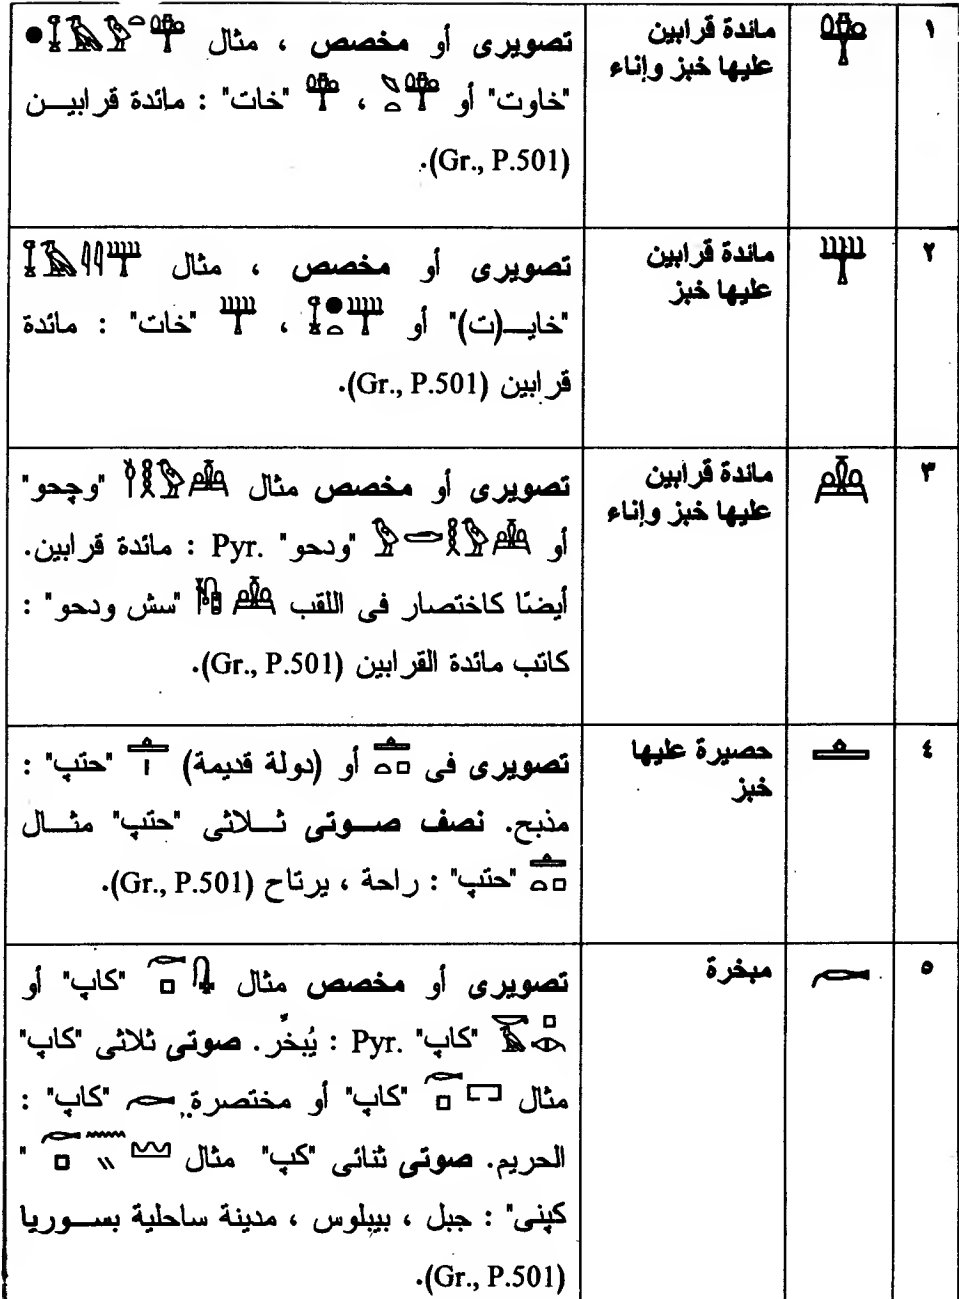 ١ مائدة قرابين تصويرى أو مخصص ، مثال
عليها خبز وإناء "خاوت" أو ، "خات" : مائدة قرابيـــن
(Gr., P.501).
٢ مائدة قرابين تصويرى أو مخصص ، مثال
عليها خبز "خايـــ(ت)" أو ، "خات" : مائدة
قرابين (Gr., P.501).
٣ مائدة قرابين تصويرى أو مخصص مثال "وچحو"
عليها خبز وإناء أو "ودحو" Pyr. : مائدة قرابين.
أيضًا كاختصار فى اللقب "سش ودحو" :
كاتب مائدة القرابين (Gr., P.501).
٤ حصيرة عليها تصويرى فى أو (دولة قديمة) "حتپ" :
خبز مذبح. نصف صـــوتى ثـــلاثى "حتپ" مثـــال
"حتپ" : راحة ، يرتاح (Gr., P.501).
٥ مبخرة تصويرى أو مخصص مثال "كاپ" أو
"كاپ" Pyr. : يُبخِّر. صوتى ثلاثى "كاپ"
مثال "كاپ" أو مختصرة "كاپ" :
الحريم. صوتى ثنائى "كپ" مثال "
كپنى" : جبل ، بيبلوس ، مدينة ساحلية بســـوريا
(Gr., P.501).